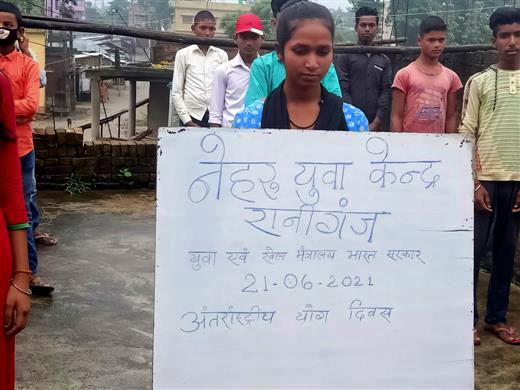 नेहरू युवा केन्द्र
रानीगंज
युवा एवं खेल मंत्रालय भारत सरकार
21-06-2021
अंतर्राष्ट्रीय योग दिवस